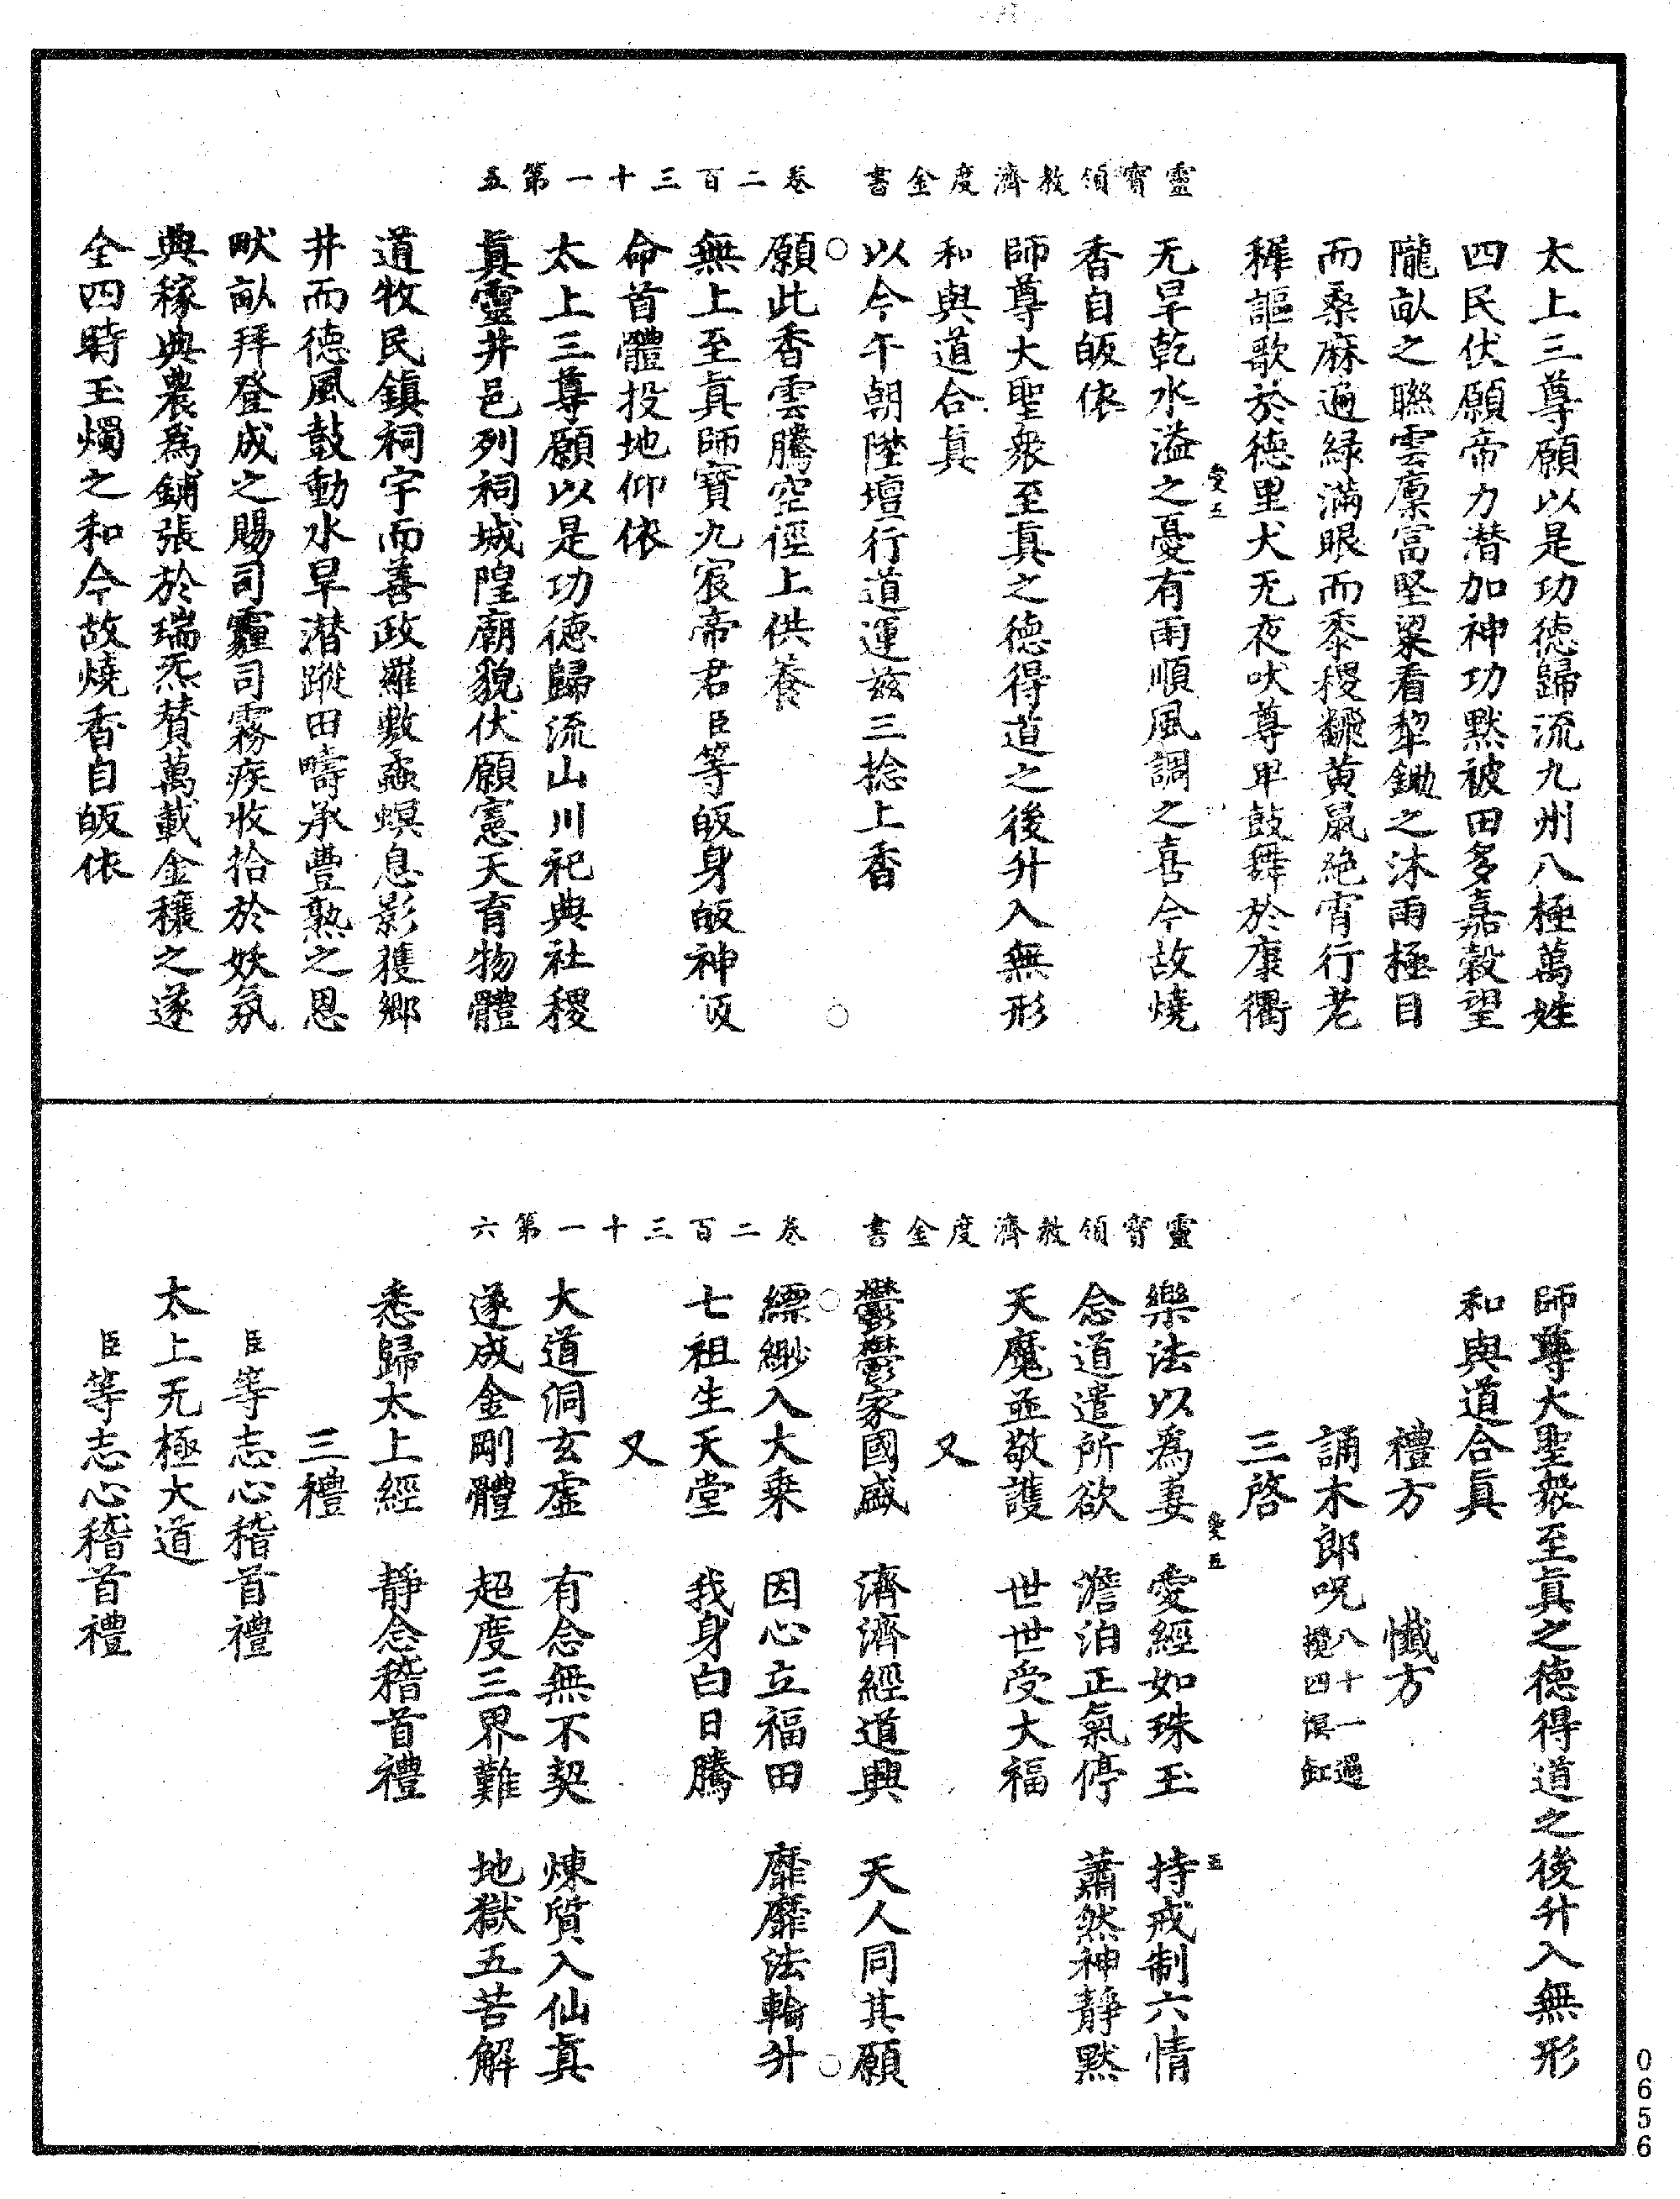 靈寶領教濟度金書　卷二百三十一第五
太上三尊願以是功德歸流九州八極萬姓
四民伏願帝力潛加神功默被田多嘉穀望
隴畝之聯雲廩富堅粱看犂鋤之沐雨極目
而桑麻遍綠滿眼而黍稷翻黃鼠絕宵行老
穉謳歌於德里犬无夜吠尊卑鼓舞於康衢
无旱乾水溢之憂有雨順風調之喜今故燒
香自皈依
師尊大聖衆至真之德得道之後升入無形
和與道合真
以今午朝陞壇行道運茲三捻上香
願此香雲騰空徑上供養
無上至真師寶九宸帝君臣等皈身皈神皈
命首體投地仰依
太上三尊願以是功德歸流山川祀典社稷
真靈井邑列祠城隍廟貌伏願憲天育物體
道牧民鎮祠宇而善政羅敷蟊螟息影獲鄉
井而德風鼓動水旱潛蹤田疇承豐熟之恩
畎畝拜登成之賜司霾司霧疾收拾於妖氛
典稼典農爲鋪張於瑞炁賛萬載金穰之遂
全四時玉燭之和今故燒香自皈依
愛五
靈寶領教濟度金書　卷二百三十一第六
師尊大聖衆至真之德得道之後升入無形
和與道合真
禮方　懺方
誦木郎呪八十一過攪四溟缸
三啓
樂法以爲妻　愛經如珠玉　持戒制六情
念道遣所欲　澹泊正氣停　蕭然神靜默
天魔並敬護　世世受大福
又
鬱鬱家國盛　濟濟經道興　天人同其願
縹緲入大乗　因心立福田　靡靡法輪升
七祖生天堂　我身白日騰
又
大道洞玄虛　有念無不契　煉質入仙真
遂成金剛體　超度三界難　地獄五苦解
悉歸太上經　靜念稽首禮
三禮
臣等志心稽首禮
太上无極大道
臣等志心稽首禮
愛五
五
0656